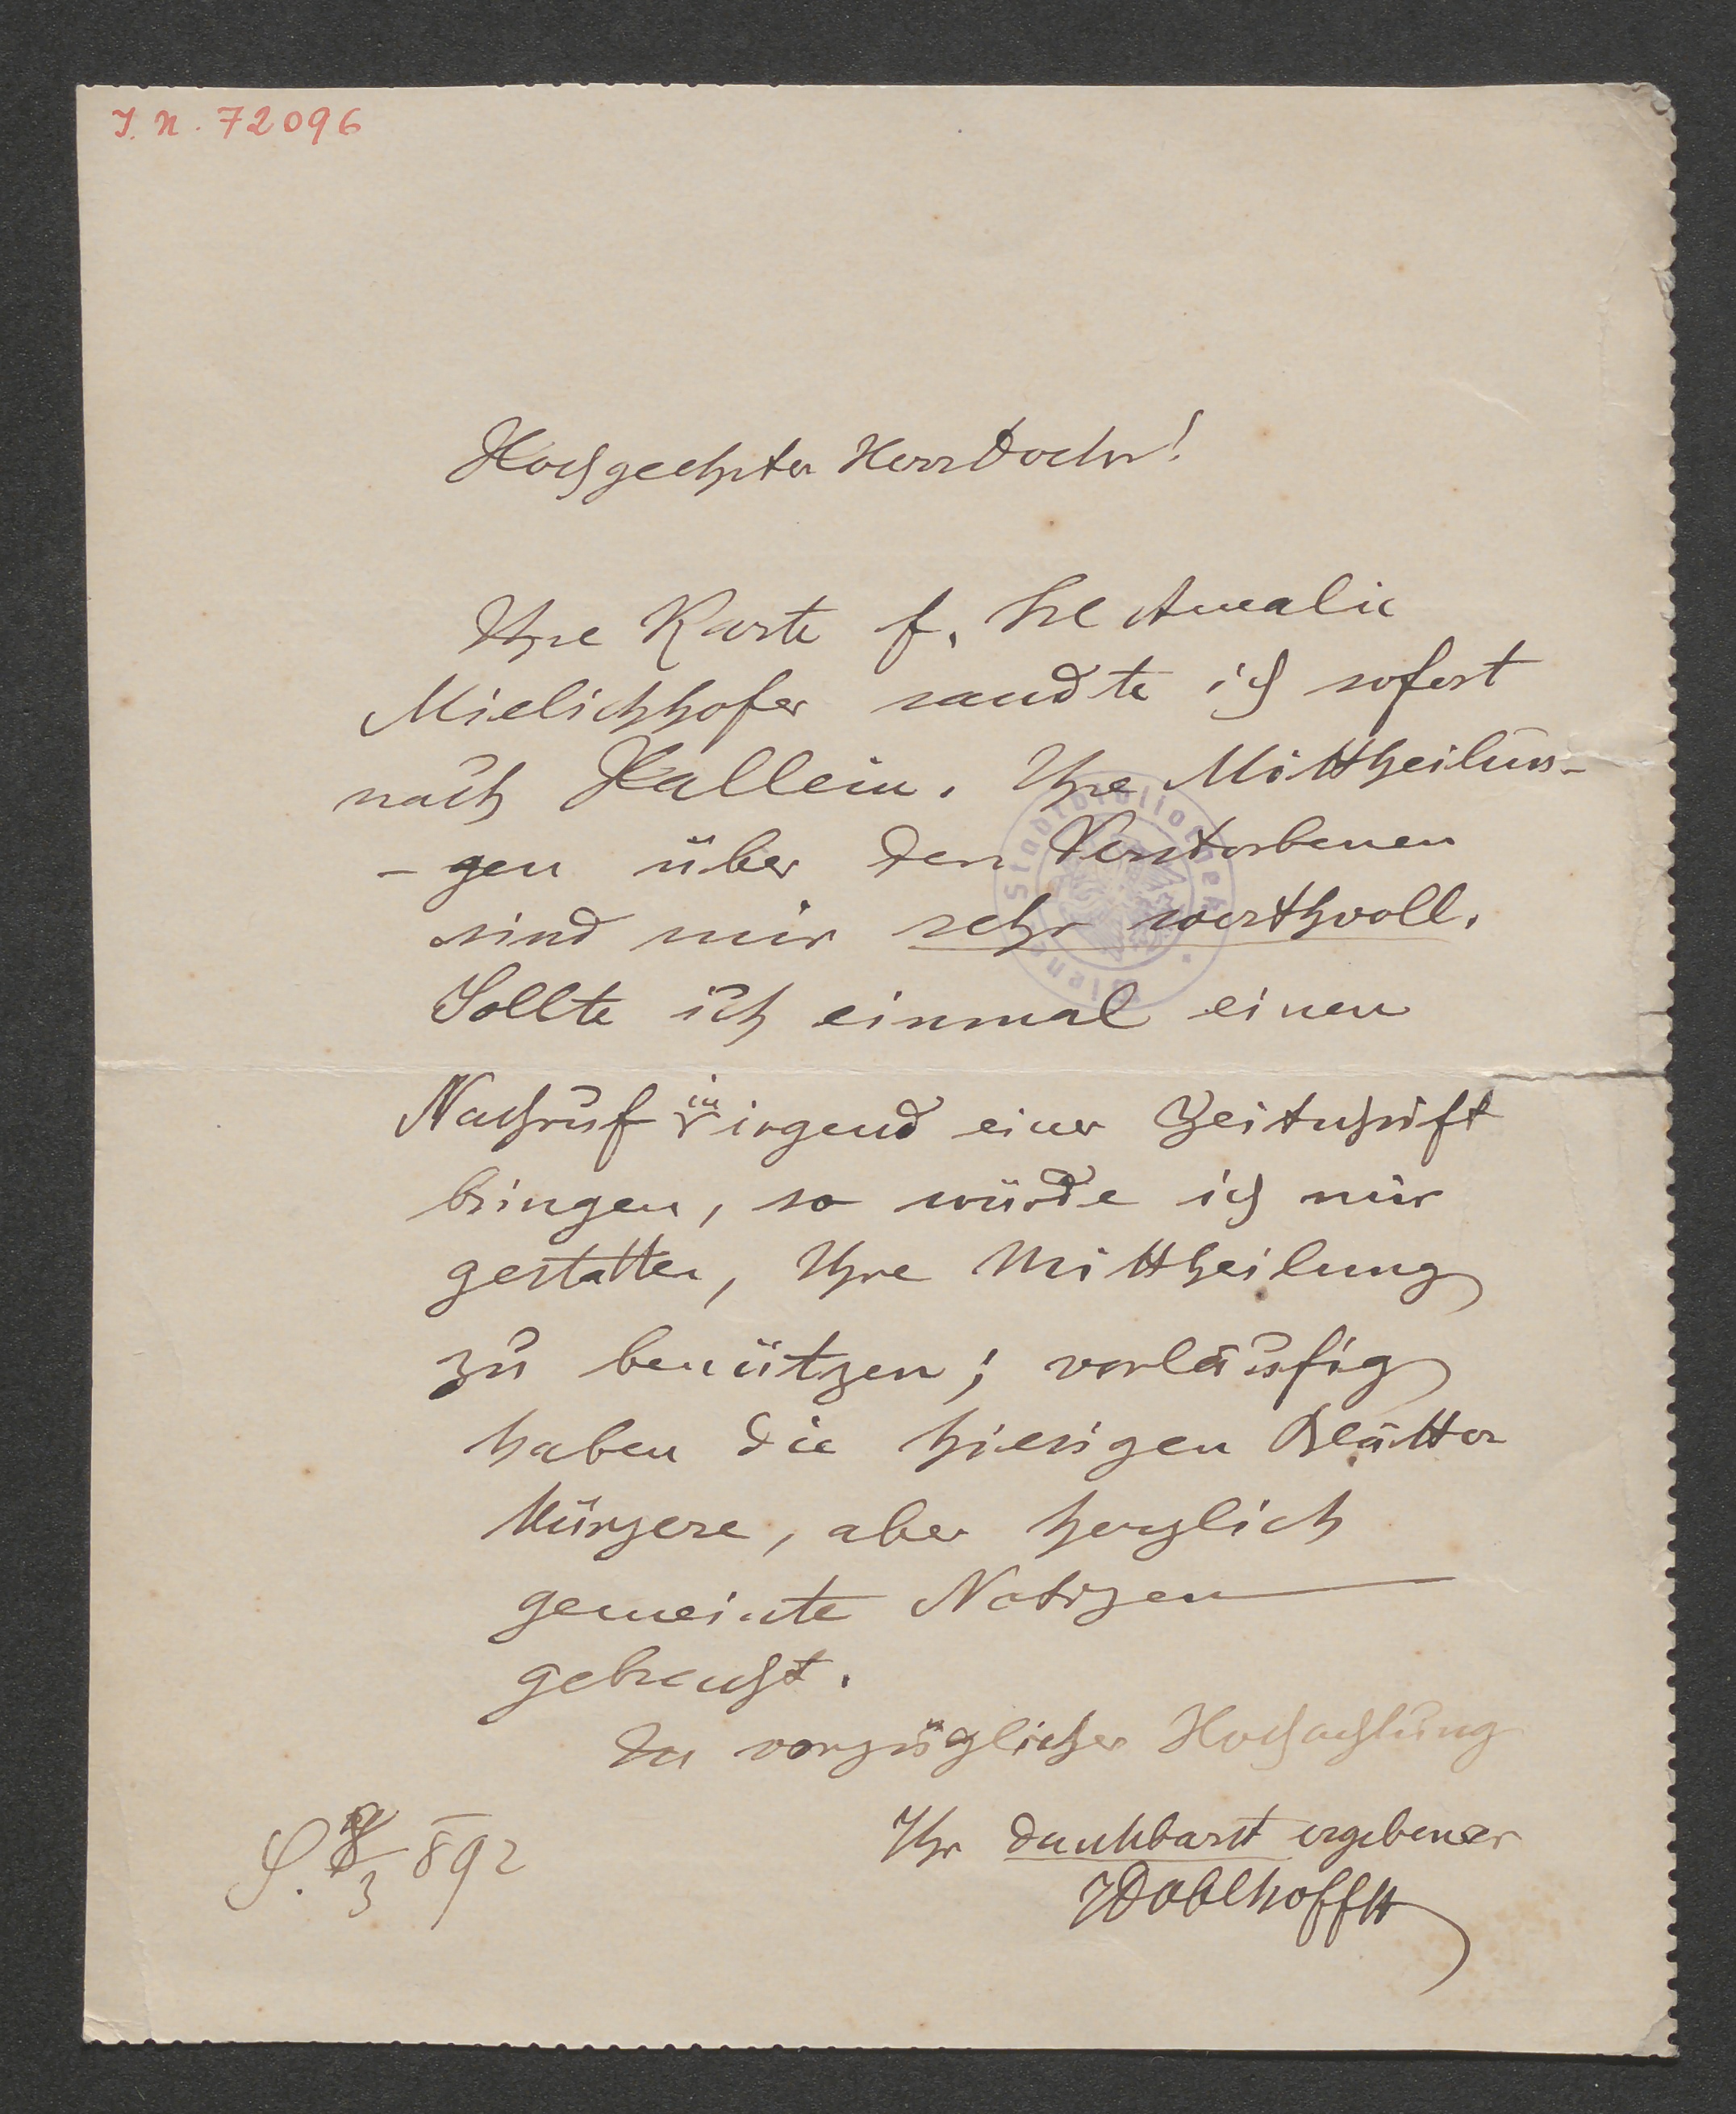 J. N. 72096
Hochgeehrter Herr Doctor!
Ihre Karte f. Frl Amalie
Mielichhofer sandte ich sofort
nach Hallein. Ihre Mittheilun-
-gen über den Verstorbenen
sind mir sehr werthvoll.
Sollte ich einmal einen
Nachruf in irgend einer Zeitschrift
bringen, so würde ich mir
gestatten, Ihre Mittheilung
zu benützen; vorläufig
haben die hiesigen Blätter
kürzere, aber herzlich
gemeinte Notizen
gebracht.
In vorzüglicher Hochachtung
Ihr dankbarst ergebener
S. 3 892
JDoblhoff
Stadtbibliothek Wien